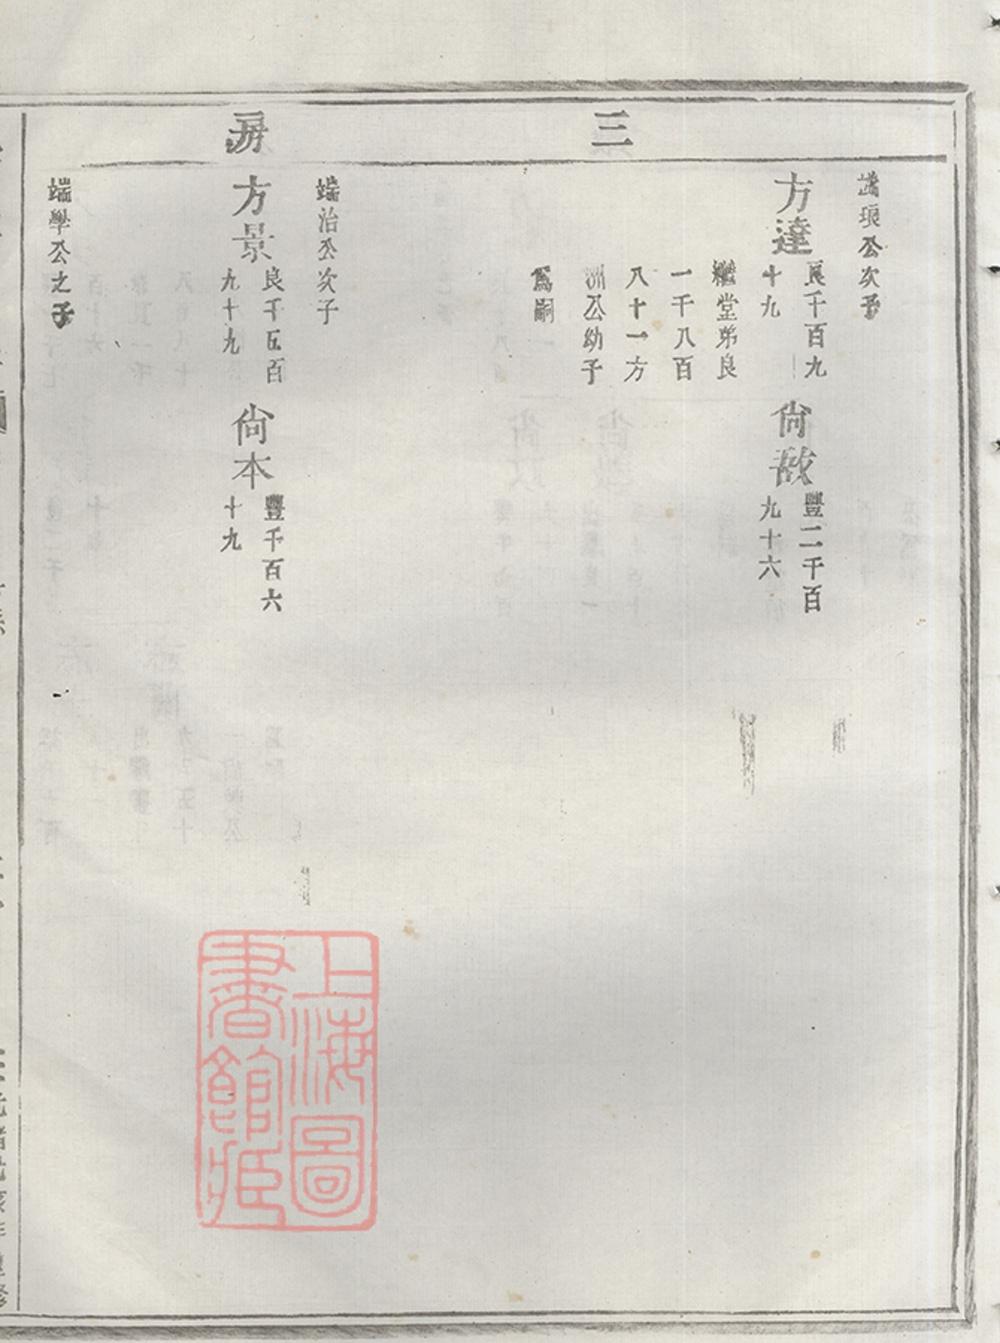 三房
端琅公次子
方達
良千百九
十九
繼堂弟良
一千八百
八十一方
洲公幼子
爲嗣
尙敔
豐二千百
九十六
端治公次子
方景
良千五百
九十九
尙本
豐千百六
十九
端學公之子
上海圖
書館臧